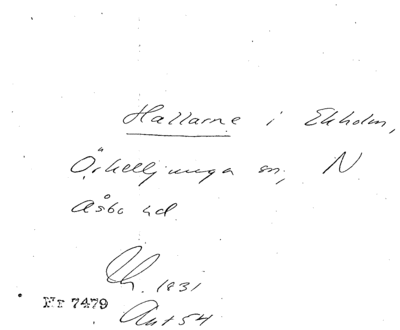 Hallarne i Ekholm,
Örkelljunga sn, N
Åsbo hd
Ch. 1831
Nr 7479
Aut 54